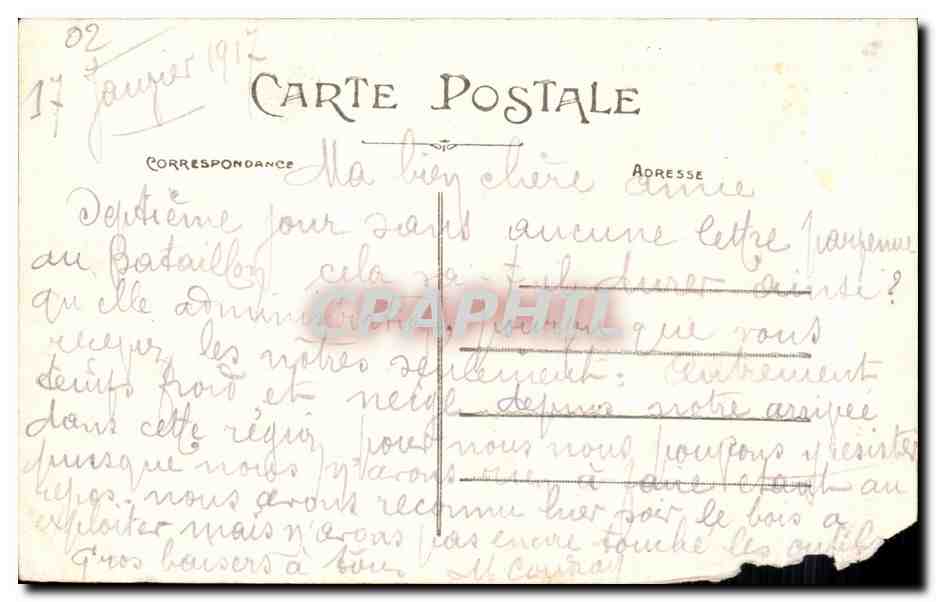 02
17 Janvier 1917
CARTE POSTALE
CORRESPONDANCE
ADRESSE
Ma bien chère amie
Septième jour sans aucune lettre parvenue
au Bataillon cela va-t-il durer ainsi?
qu'elle administration, pourvu que vous
receviez les nôtres seulement: autrement
temps froid et neige depuis notre arrivée
dans cette région pour nous nous pouvons y résister
puisque nous n'avons rien à faire étant au
repos. nous avons reconnu hier soir le bois à
exploiter mais n'avons pas encore touché les outils
Gros baisers à tous
CPAPHIL